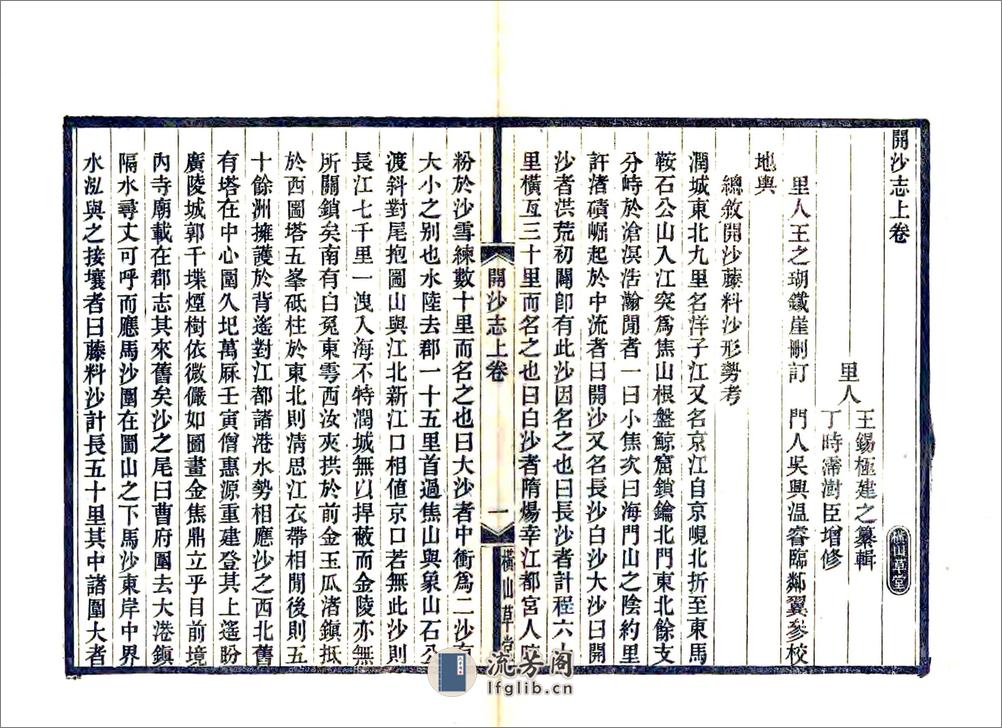 開沙志上卷
里人
王錫極建之纂輯
丁時霈澍臣增修
里人王之瑚鐵崖刪訂　門人吳興溫睿臨鄰翼參校
地輿
總敘開沙藤料沙形勢考
潤城東北九里名洋子江又名京江自京峴北折至東馬
鞍石公山入江突爲焦山根盤鯨窟鎖鑰北門東北餘支
分峙於滄溟浩瀚閒者一曰小焦次曰海門山之陰約里
許渚磧崛起於中流者曰開沙又名長沙白沙大沙曰開
沙者洪荒初闢卽有此沙因名之也曰長沙者計程六十
里橫亙三十里而名之也曰白沙者隋煬幸江都宮人
粉於沙雪練數十里而名之也曰大沙者中衝爲二沙有
大小之別也水陸去郡一十五里首過焦山與象山石公
渡斜對尾抱圌山與江北新江口相値京口若無此沙則
長江七千里一洩入海不特潤城無以捍蔽而金陵亦無
所關鎖矣南有白兔東雩西汝夾拱於前金玉瓜渚鎭抵
於西圌塔五峯砥柱於東北則淸思江衣帶相閒後則五
十餘洲擁護於背遙對江都諸港水勢相應沙之西北舊
有塔在中心圍久圮萬厤壬寅僧惠源重建登其上遙盼
廣陵城郭千堞煙樹依微儼如圖畫金焦鼎立乎目前境
內寺廟載在郡志其來舊矣沙之尾曰曹府圍去大港鎭
隔水尋丈可呼而應馬沙圍在圌山之下馬沙東岸中界
水泓與之接壤者曰藤料沙計長五十里其中諸圍大者
開沙志上卷
一
橫山草堂
橫山草堂
流芳阁
lfglib.cn